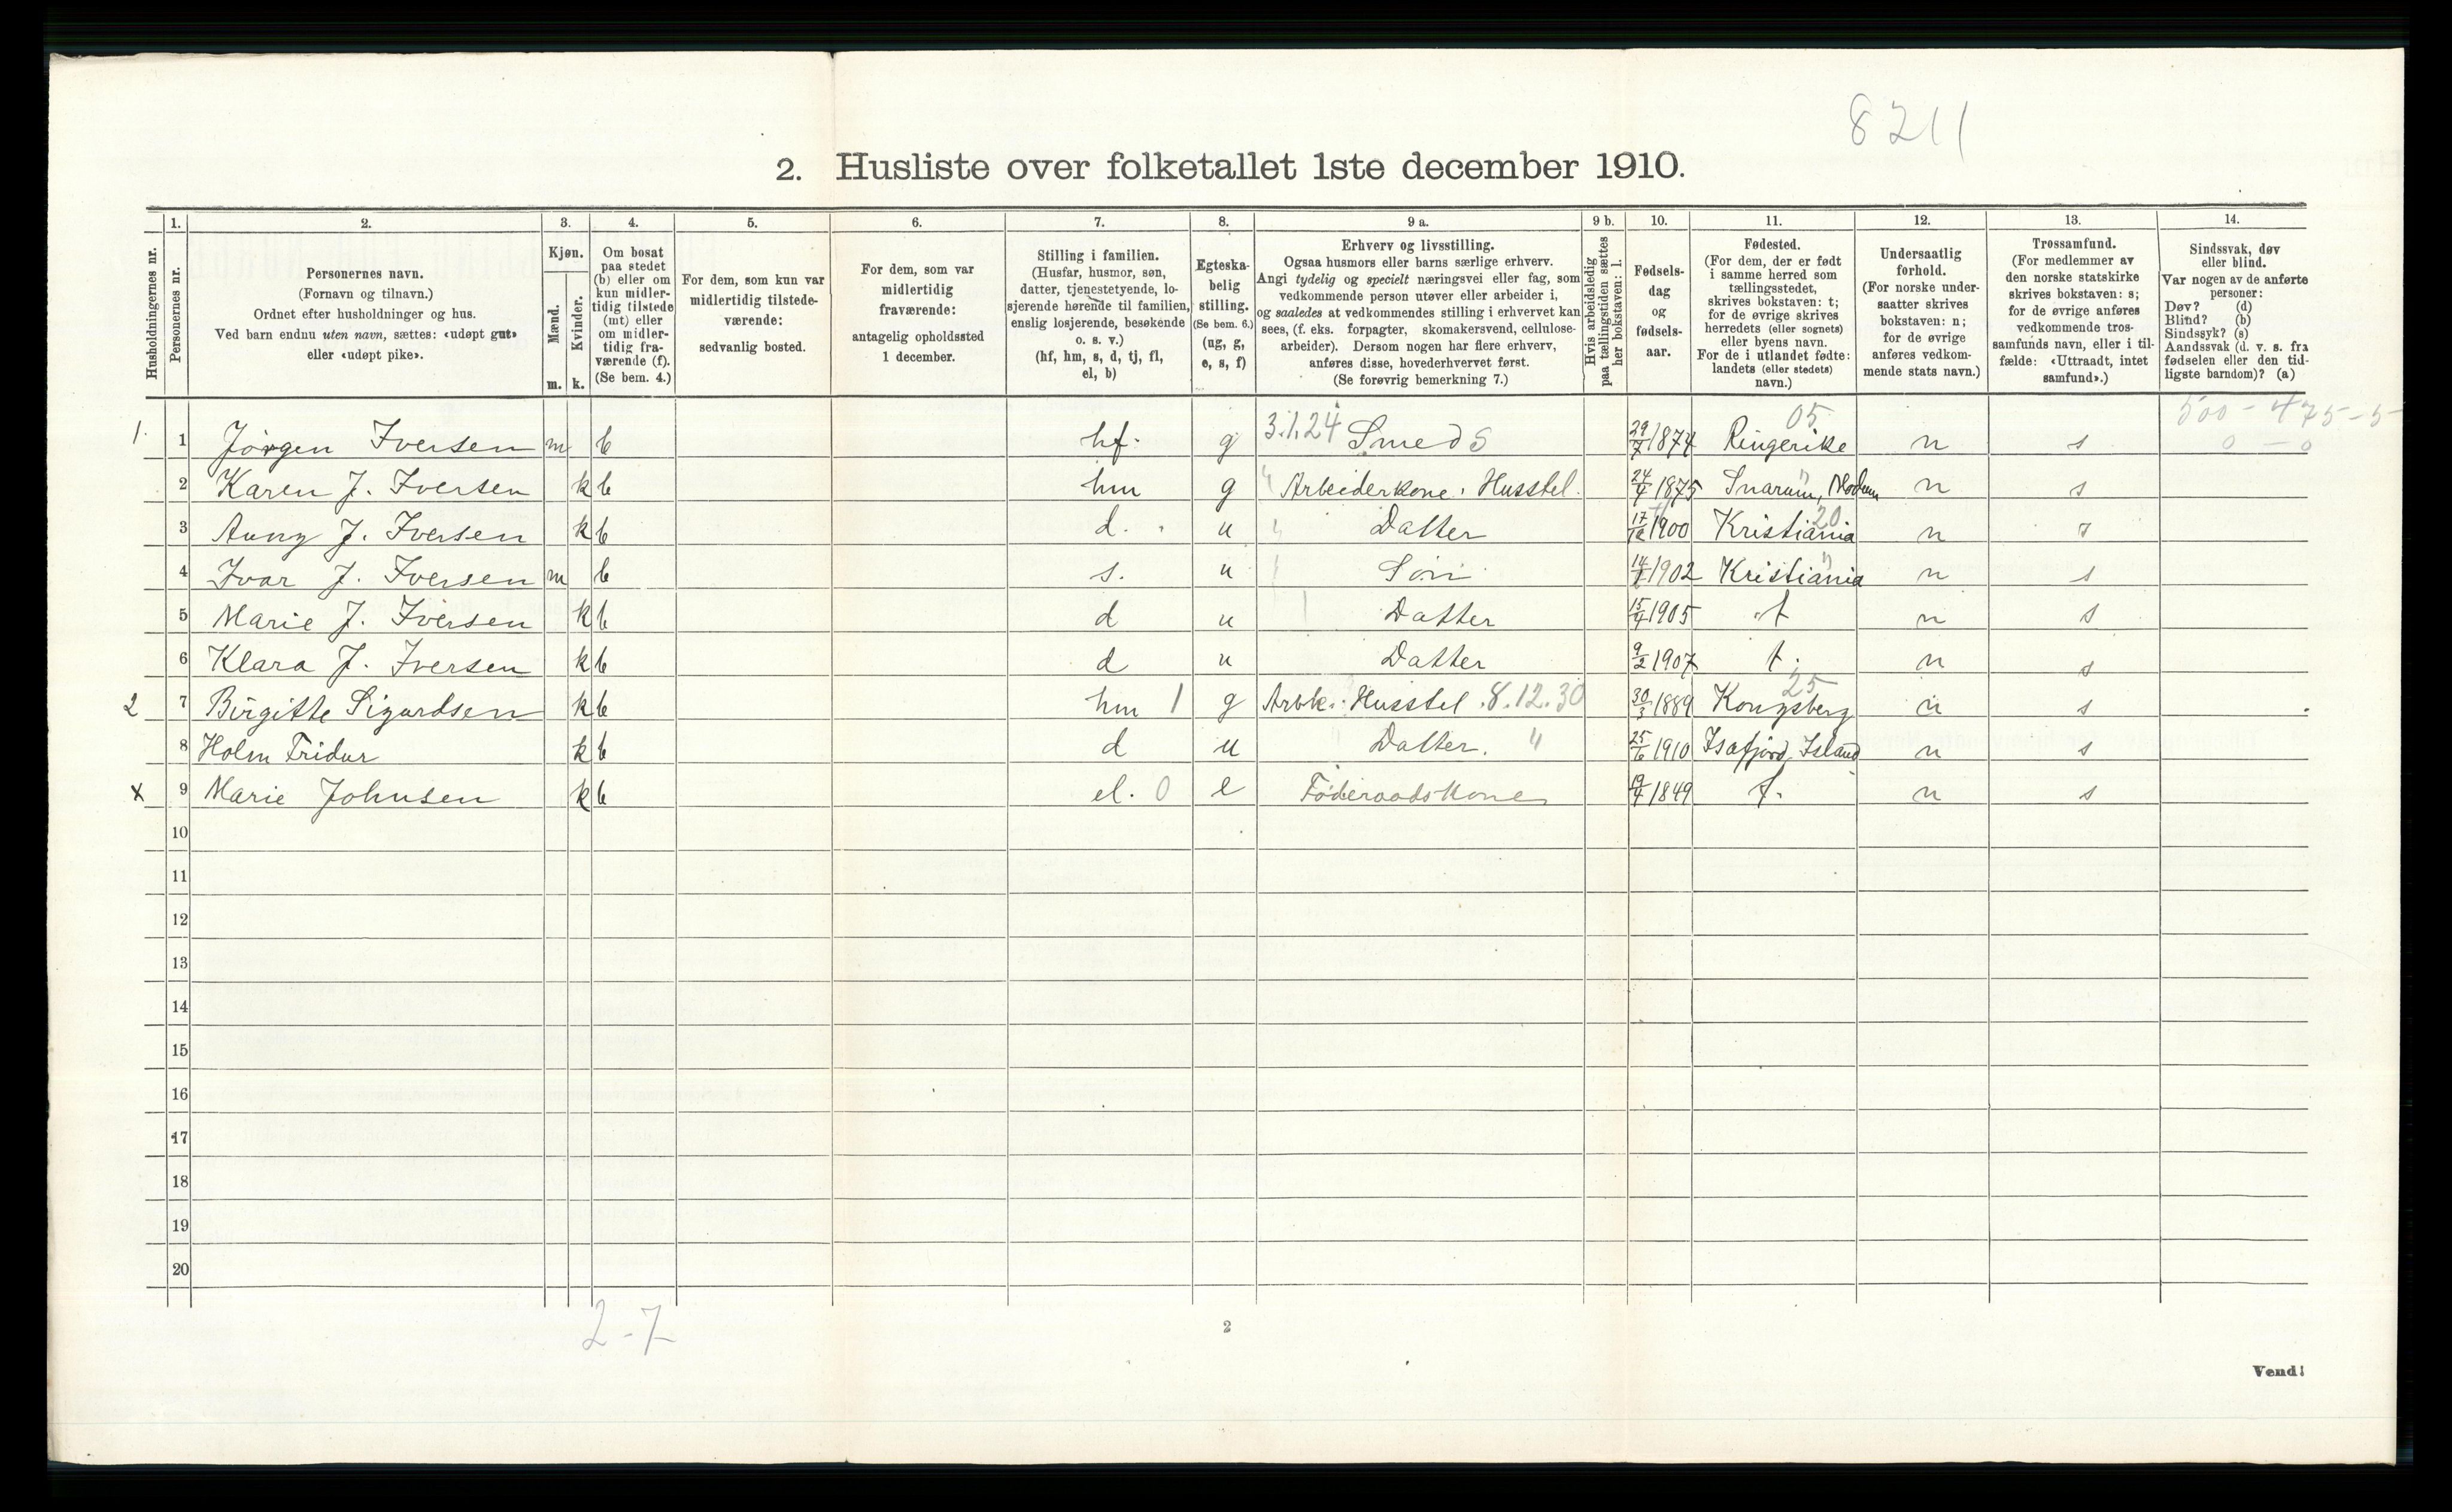 8211
2. Husliste over folketallet 1ste december 1910.
Husholdningernes nr.
1.
Personernes nr.
2.
Personernes navn.
(Fornavn og tilnavn.)
Ordnet efter husholdninger og hus.
Ved barn endnu uten navn, sættes: «udøpt gut»
eller «udøpt pike».
3.
Kjøn.
Mænd.
Kvinder.
m. k.
4.
Om bosat
paa stedet
(b) eller om
kun midler-
tidig tilstede
(mt) eller
om midler-
tidig fra-
værende (f).
(Se bem. 4.)
5.
For dem, som kun var
midlertidig tilstede-
værende:
sedvanlig bosted.
6.
For dem, som var
midlertidig
fraværende:
antagelig opholdssted
1 december.
7.
Stilling i familien.
(Husfar, husmor, søn,
datter, tjenestetyende, lo-
sjerende hørende til familien,
enslig losjerende, besøkende
o. s. v.)
(hf, hm, s, d, tj, fl,
el, b)
8.
Egteska-
belig
stilling.
(Se bem. 6.)
(ug, g,
e, s, f)
9 a.
Erhverv og livsstilling.
Ogsaa husmors eller barns særlige erhverv.
Angi tydelig og specielt næringsvei eller fag, som
vedkommende person utøver eller arbeider i,
og saaledes at vedkommendes stilling i erhvervet kan
sees, (f. eks. forpagter, skomakersvend, cellulose-
arbeider). Dersom nogen har flere erhverv,
anføres disse, hovederhvervet først.
(Se forøvrig bemerkning 7.)
9 b.
Hvis arbeidsledig
paa tællingstiden sættes
her bokstaven: l.
10.
Fødsels-
dag
og
fødsels-
aar.
11.
Fødested.
(For dem, der er født
i samme herred som
tællingsstedet,
skrives bokstaven: t;
for de øvrige skrives
herredets (eller sognets)
eller byens navn.
For de i utlandet fødte:
landets (eller stedets)
navn.)
12.
Undersaatlig
forhold.
(For norske under-
saatter skrives
bokstaven: n;
for de øvrige
anføres vedkom-
mende stats navn.)
13.
Trossamfund.
(For medlemmer av
den norske statskirke
skrives bokstaven: s;
for de øvrige anføres
vedkommende tros-
samfunds navn, eller i til-
fælde: «Uttraadt, intet
samfund».)
14.
Sindssvak, døv
eller blind.
Var nogen av de anførte
personer:
Døv? (d)
Blind? (b)
Sindssyk? (s)
Aandssvak (d. v. s. fra
fødselen eller den tid-
ligste barndom)? (a)
05 500 - 475-5
1. 1 Jörgen Iversen m b hf. g 3.1.24 Smed S 29/7 1874 Ringerike n s 0 - 0
2 Karen J. Iversen k b hm g " Arbeiderkone. Husstel. 24/4 1875 Snarum, Modum n s
3 Auny J. Iversen k b d. u " Datter 17/12 1900 Kristiania 20 n s
4 Ivar J. Iversen m b s. u Sön 1902 Kristiania " n s
5 Marie J. Iversen k b d u Datter 15/4 1905 t n s
6 Klara J. Iversen k b d u Datter 9/2 1907 t. n s
2 7 Birgitte Sigurdsen k b hm 1 g Arbk. Husstel .8.12.30 30/3 1889 Kongsberg 25 n s
8 Holm Fridur k b d u Datter. " 25/6 1910 Isafjord, Island n s
x 9 Marie Johnsen k b el. 0 e Föderaadskone 1849 t. n s
10
11
12
13
14
15
16
17
18
19
20
2-7
2
Vend!